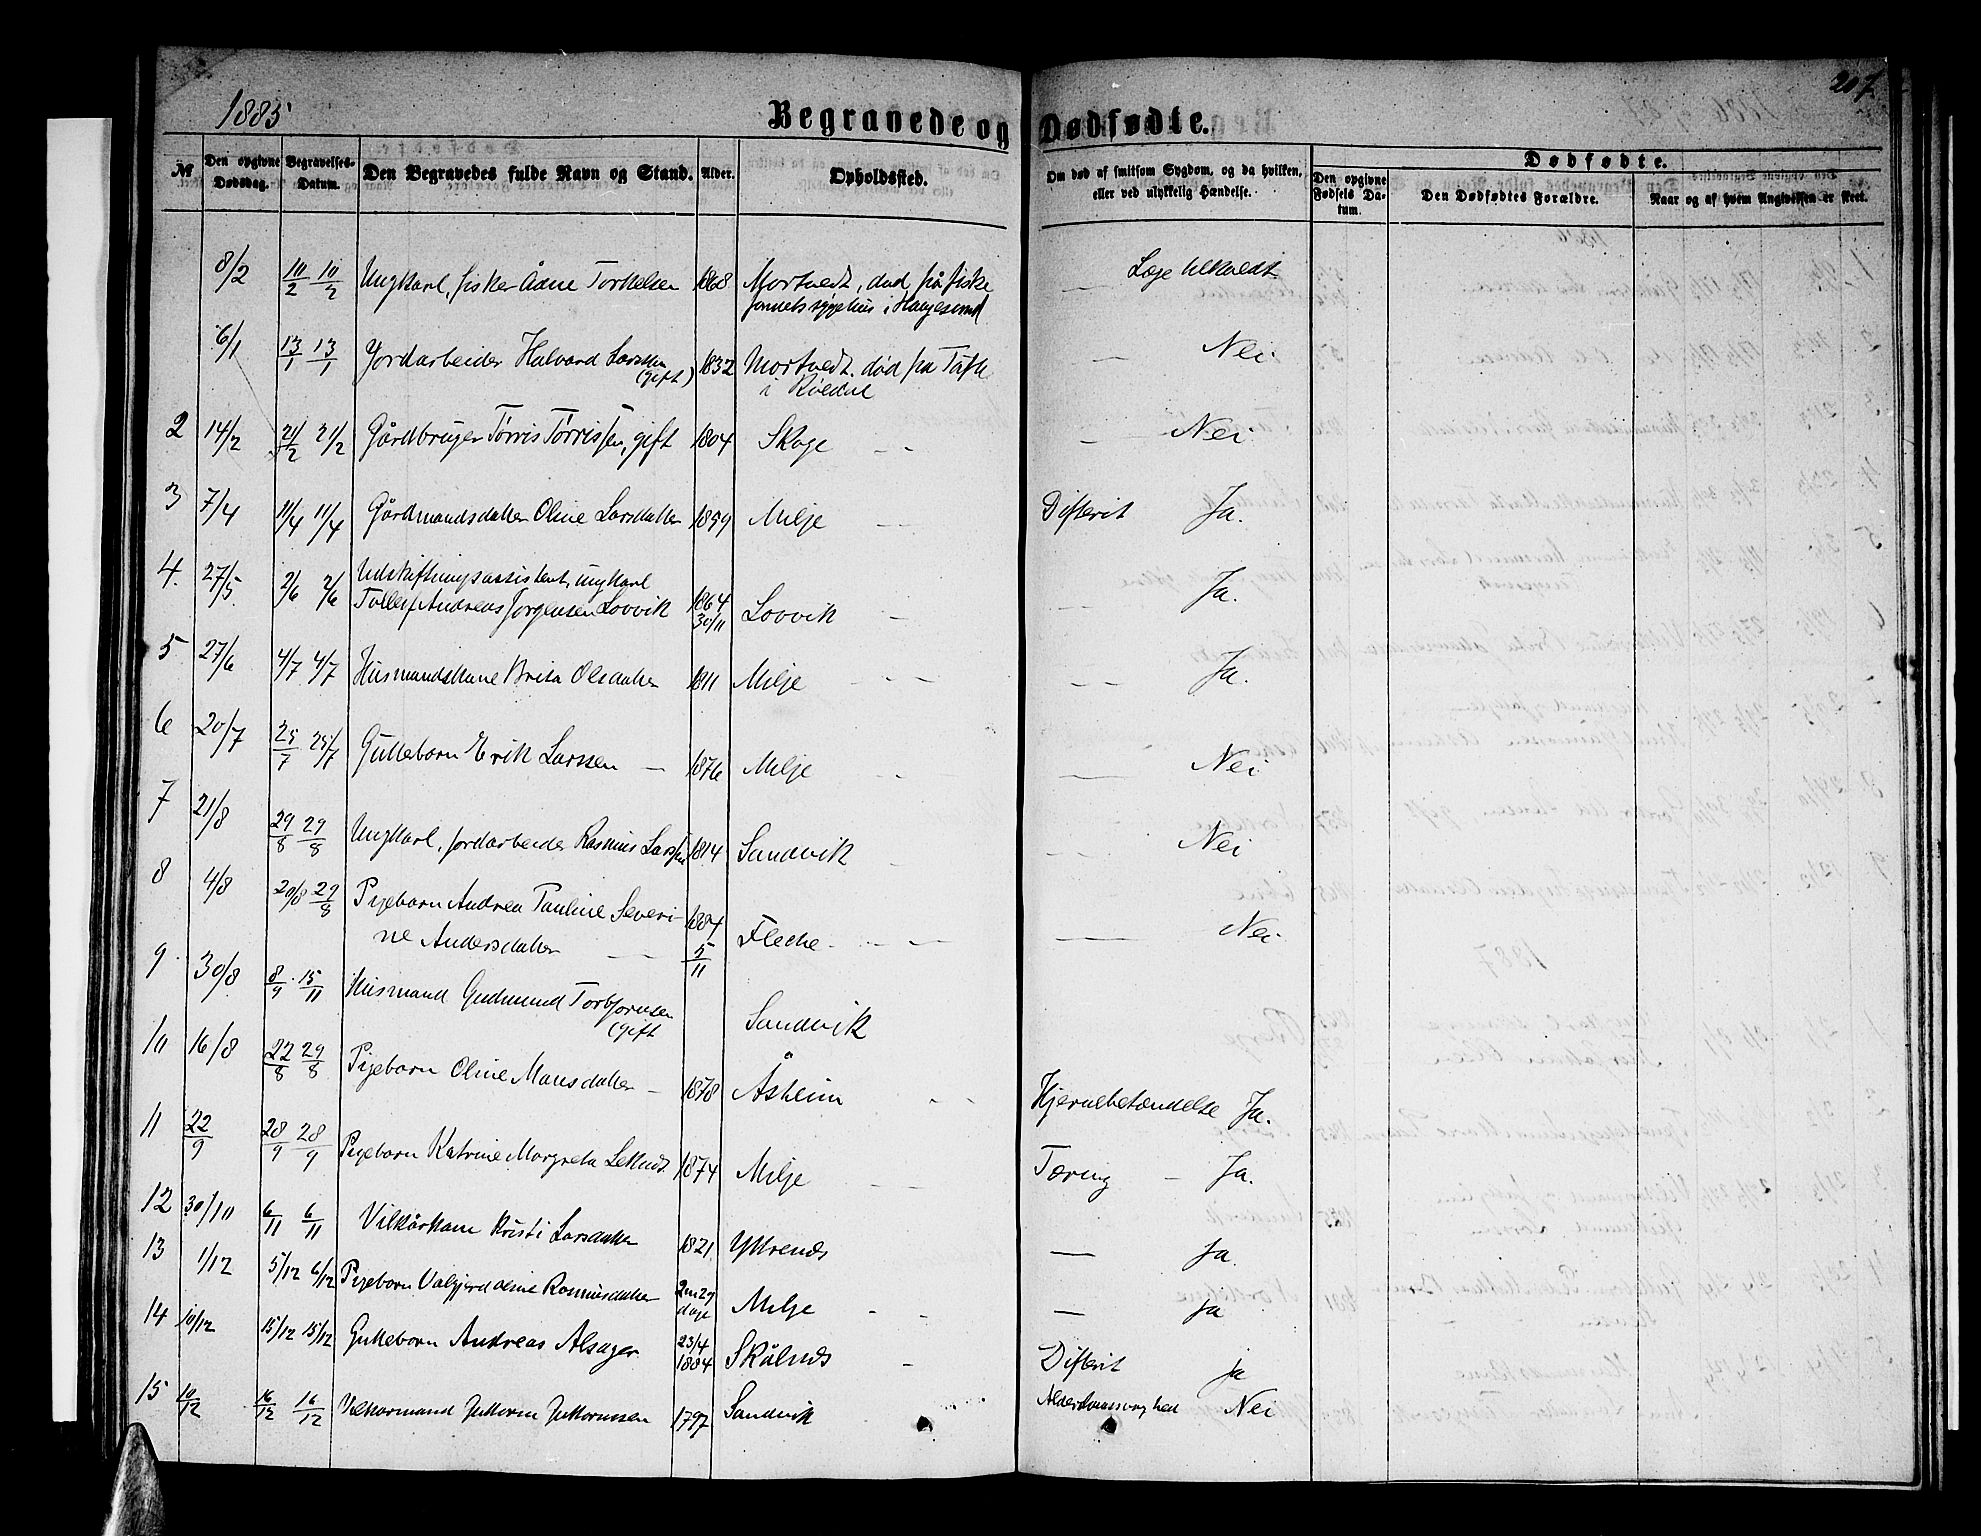 1885
Begravede og Dødfødte.
207
№
Den opgivne Dødsdag.
Begravelses-Datum.
Den Begravedes fulde Navn og Stand.
Alder.
Opholdssted.
Om død af smitsom Sygdom, og da hvilken, eller ved ulykkelig Hændelse.
Dødfødte.
Den opgivne Fødsels Datum.
Den Dødfødtes Forældre.
Naar og af hvem Angivelsen er skeet.
Læge tilkaldt
8/2 10/2 10/2 Ungkarl, fisker Ådne Torkelsen 1868 Mortvedt, død på fiske
sygehus i Haugesund —
6/1 13/1 13/1 Jordarbeider Halvard Larssen (gift) 1832 Mortvedt. død på
i Røldal — Nei
2 14/2 21/2 21/2 Gårdbruger Tørris Tørrissen, gift 1804 Skoge — Nei
3 7/4 11/4 11/4 Gårdmandsdatter Oline Larsdatter 1859 Milje Difterit Ja.
4. 27/5. 2/6 2/6 Udskiftningsassistent, ungkarl
Tollef Andreas Jørgensen Lovvik 1864 30/11 Lovvik — Ja.
5 27/6 4/7 4/7 Husmandskone Brita Olsdatter 1811 Milje — Ja.
6 20/7 25/7 25/7 Gutteborn Erik Larssen — 1876 Milje — Nei
7 21/8 29/8 29/8 Ungkarl, jordarbeider Rasmus Larssen 1814 Sandvik — Nei
8 4/8 29/8 29/8 Pigeborn Andrea Pauline Severi-
ne Andersdatter 1884 5/11 Fleche — Nei
9 30/8 8/9 15/11 Husmand Gudmund Torbjørnsen
(gift Sandvik
10 16/8 22/8 29/8 Pigeborn Oline Monsdatter — 1878 Åsheim Hjernebetændelse Ja.
11 22/9 28/9 28/9 Pigeborn Katrine Margreta Leknes 1874 Milje Tæring — Ja.
12 30/10 6/11 6/11 Vilkårkone Kristi Larsdatter 1821 Yttrenes — Ja.
13 1/12 5/12 6/12 Pigeborn Valgjerd Oline Rasmusdatter 2 m 29 dage Milje — Ja
14 10/12 15/12 15/12 Gutteborn Andreas Alsager 23/4 1884 Skålnes — Difterit ja
15 10/12 16/12 16/12 Vilkormand Guttorm Guttormssen 1797 Sandvik Alderdomssvaghed Nei